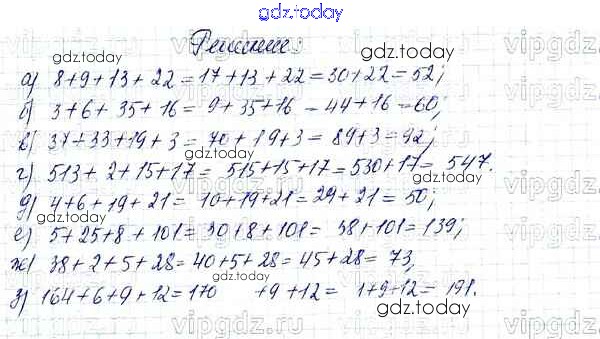 gdz.today
Решение:
а) 8+9+13+22=17+13+22=30+22=52;
б) 3+6+35+16=9+35+16=44+16=60;
в) 37+33+19+3=70+19+3=89+3=92;
г) 513+2+15+17=515+15+17=530+17=547.
д) 4+6+19+21=10+19+21=29+21=50;
е) 5+25+8+101=30+8+101=38+101=139;
ж) 38+2+5+28=40+5+28=45+28=73,
з) 164+6+9+12=170 +9+12= 1+9+12=191.